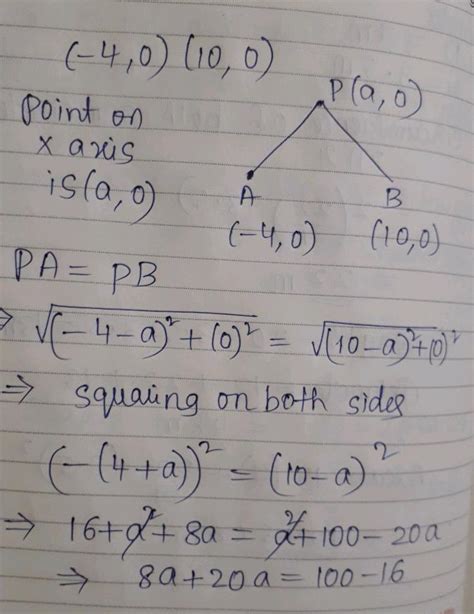 (-4,0) (10,0)
P(a,0)
point on
x axis
is (a,0)
A
B
(-4,0)
(10,0)
PA = PB
⇒ √((-4-a)²+(0)²) = √((10-a)²+(0)²)
⇒ squaring on both sides
(-(4+a))² = (10-a)²
⇒ 16+a²+8a = a²+100-20a
⇒ 8a+20a = 100-16